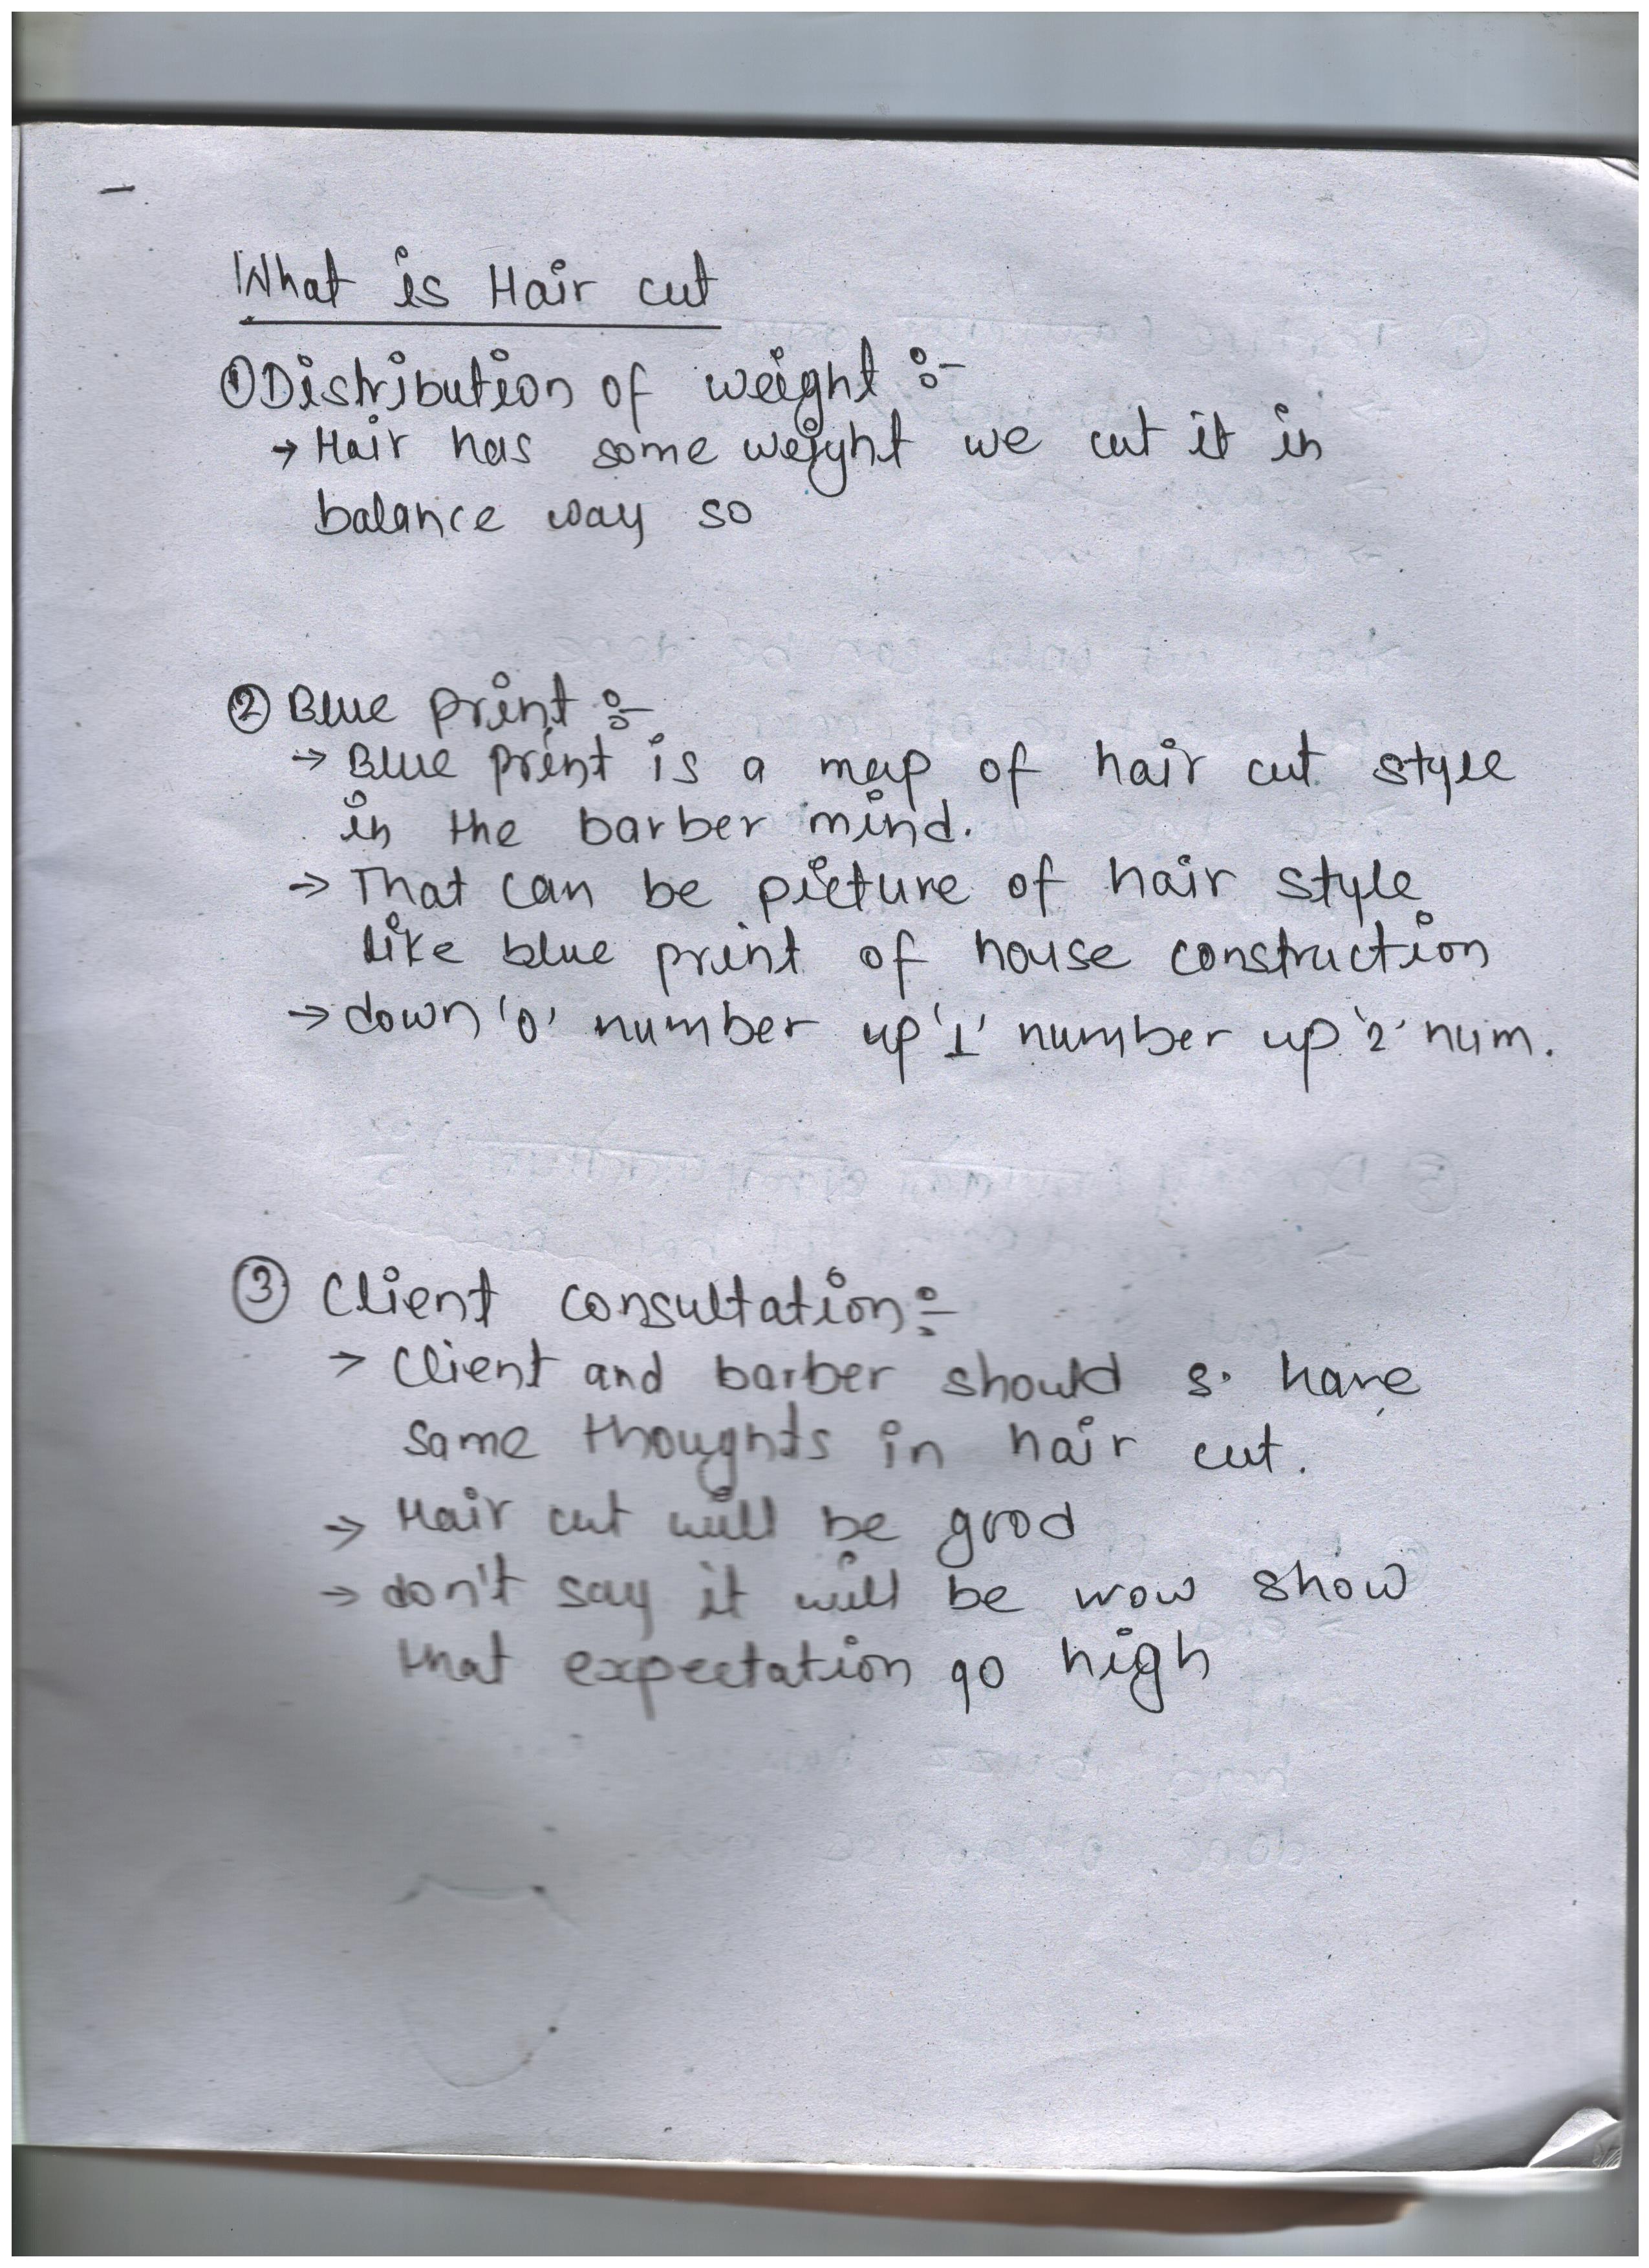 What is Hair cut
① Distribution of weight :-
→ Hair has some weight we cut it in
balance way so
② Blue print :-
→ Blue print is a map of hair cut style
in the barber mind.
→ That can be picture of hair style
like blue print of house construction
→ down '0' number up '1' number up '2' num.
③ Client consultation :-
→ Client and barber should s. have
same thoughts in hair cut.
→ Hair cut will be good
→ don't say it will be wow show
that expectation go high